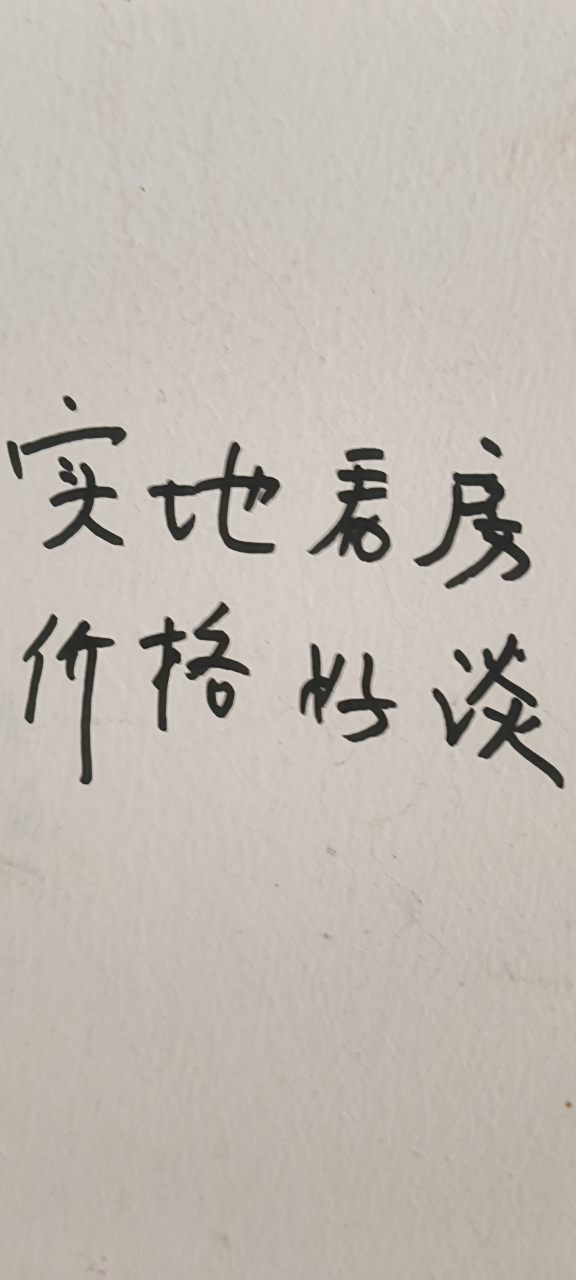 实地看房
价格好谈